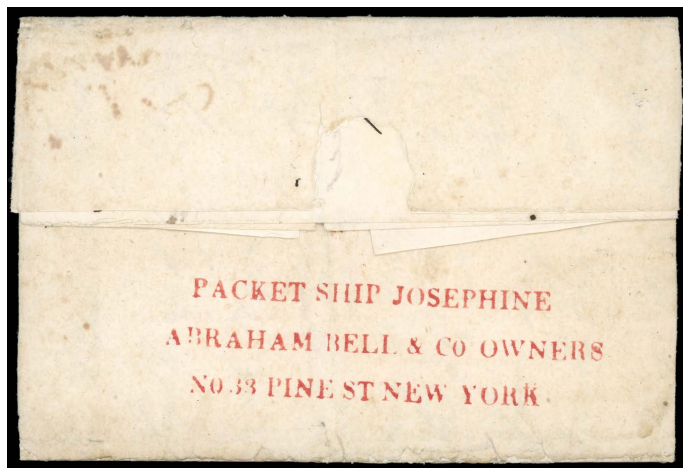 PACKET SHIP JOSEPHINE
ABRAHAM BELL & Co OWNERS
No 33 PINE ST NEW YORK